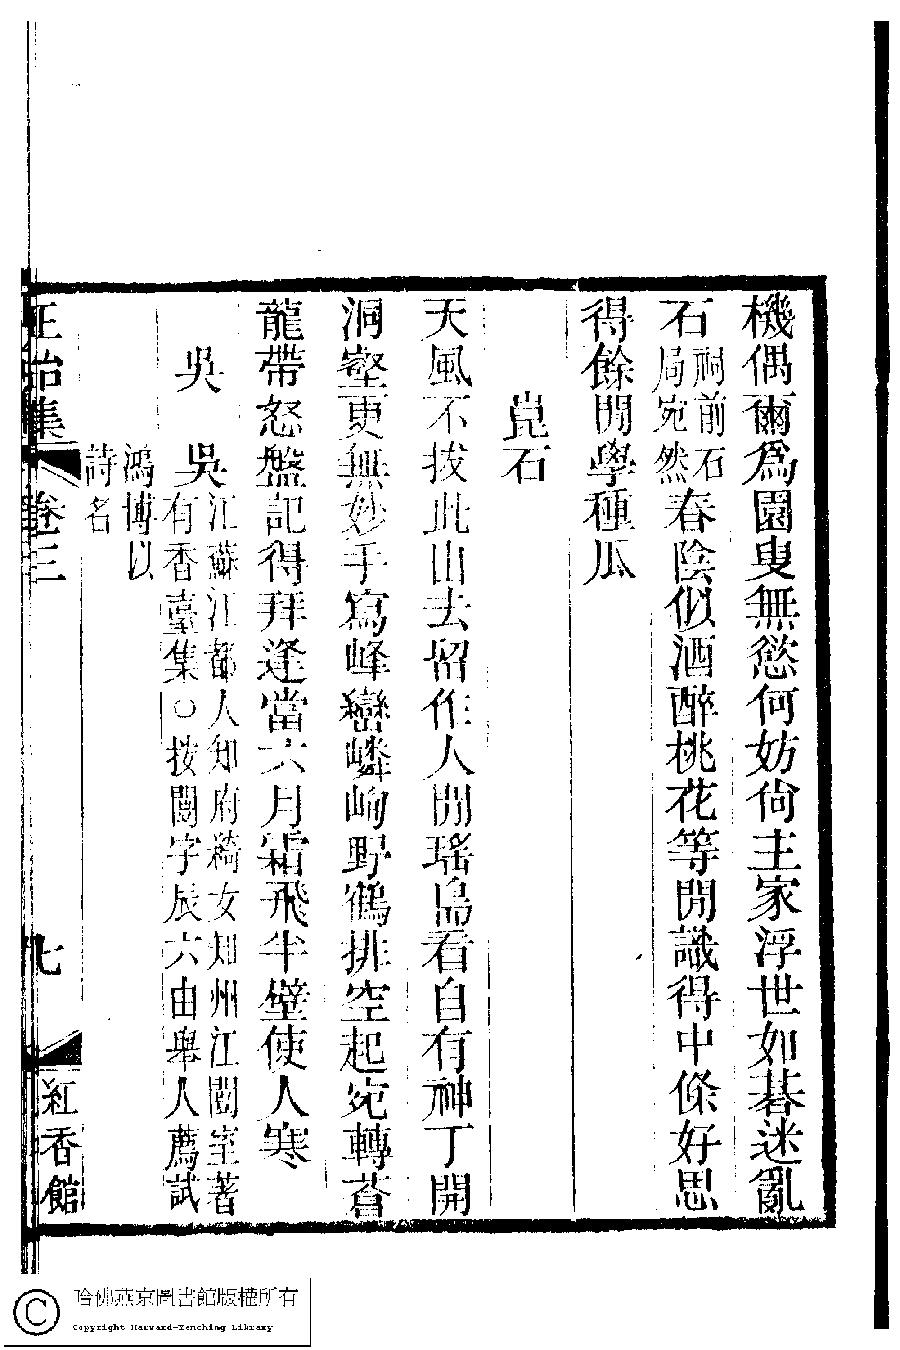 機偶爾爲園叟無慾何妨尙主家浮世如碁迷亂
石祠前石局宛然春陰似酒醉桃花等閒識得中條好思
得餘閒學種瓜
崑石
天風不拔此山去留作人間瑤島看自有神丁開
洞壑更無妙手寫峰巒嶙峋野鶴排空起宛轉蒼
龍帶怒盤記得拜逢當六月霜飛半壁使人寒
吳 吳江蘇江都人知府綺女知州江闓室著
有香臺集○按闓字辰六由舉人薦試
鴻博以
詩名
正始集 卷三 七 紅香館
哈佛燕京圖書館版權所有
Copyright Harvard-Yenching Library